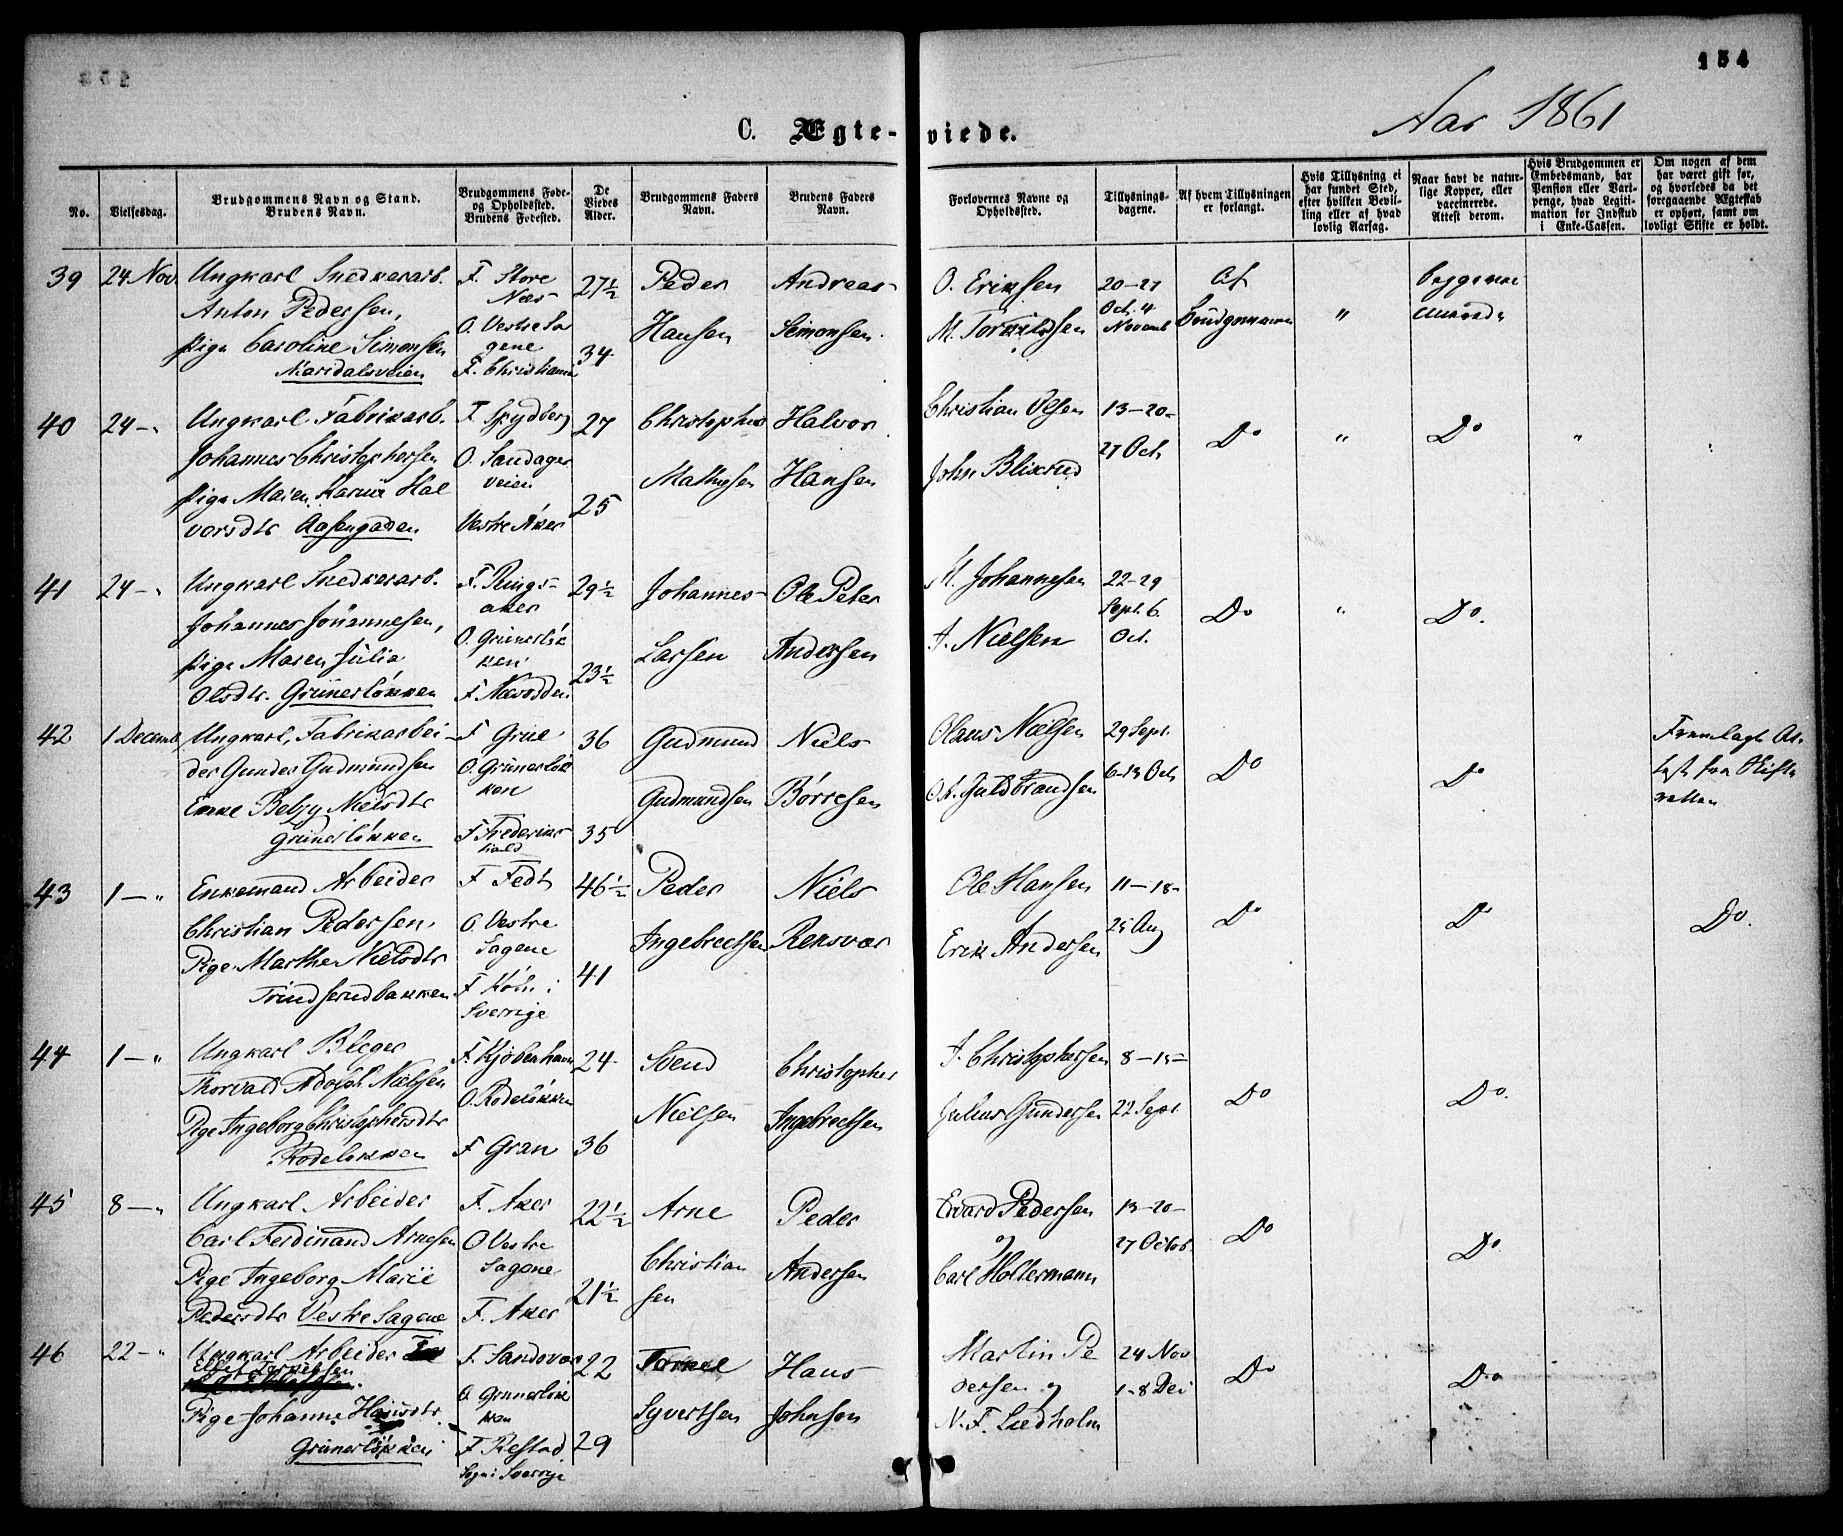 154
Aar 1861
C. Ægte-viede.
No.
Vielsesdag.
Brudgommens Navn og Stand.
Brudens Navn.
Brudgommens Føde-
og Opholdssted.
Brudens Fødested.
De
Viedes
Alder.
Brudgommens Faders
Navn.
Brudens Faders
Navn.
Forlovernes Navne og
Opholdssted.
Tillysnings-
dagene.
Af hvem Tillysningen
er forlangt.
Hvis Tillysning ei
har fundet Sted,
efter hvilken Bevil-
ling eller af hvad
lovlig Aarsag.
Naar havt de natur-
lige Kopper, eller
vaccinerede.
Attest derom.
Hvis Brudgommen er
Embedsmand, har
Pension eller Vart-
penge, hvad Legiti-
mation for Indskud
i Enke-Cassen.
Om nogen af dem
har været gift før,
og hvorledes da det
foregaaende Ægteskab
er ophørt, samt om
lovligt Skifte er holdt.
39
24 Nov.
Ungkarl Snedkerarb.
Anton Pedersen,
Pige Caroline Simonsen
Maridalsveien
F. Store
Næs
O. Vestre Sa
gene
F. Christiania
27½
34
Peder
Hansen
Andreas
Simonsen.
O. Eriksen
20-27
Oct. 4
Novemb
Af
Brudgommen
"
40
24 - "
Ungkarl Fabrikarb.
Johannes Christophersen
Pige Maren Karine Hal
vorsdtr Aasengaden
F. Spydberg
O. Sandager
veien
Vestre Aker
27
25
Christopher
Mathisen
Halvor
Hansen
Christian Olsen
John Blixrud
13-20-
27 Oct.
Do
"
Do
"
41
24 - "
Ungkarl Snedkerarb.
Johannes Johannesen,
Pige Maren Julia
Olsdtr. Grünerløkken
F. Rings-
aker
O. Grünerløk
ken
F. Næsodden
29½
23½
Johannes
Larsen
Ole Peter
Andersen
M. Johannesen
J. Nielsen
22-29
Sept. 6
Oct.
Do
"
Do.
42
1 Decemb
Ungkarl, Fabrikarbei-
der Gunder Gudmundsen
Enke Betzy Nielsdtr
Grünerløkken
F Grue
O. Grünerløk
ken
F. Frederiks-
hald
36
35
Gudmund
Gudmundsen
Niels
Børresen
Olaus Nielsen
29 Sept.
6-13 Oct
Do
Do
Fremlagt At-
test fra Skifte
retten
43
1 - "
Enkemand Arbeider
Christian Pedersen,
Pige Marthe Nielsdtr
F. Fedt
O. Vestre
Sagene
Sverrige
46½
41
Peder
Ingebrectsen
Niels
Reksvar
Ole Hansen
Erik Andersen
11-18-
25 Aug
Do
Do
Do.
44
1 - "
Ungkarl Bleger
Thorvald Adolph Nielsen
Pige Ingeborg Christophersdtr
Rodeløkken
F. Kjøbenhavn
O. Rodeløkken
F Gran
24
36
Svend
Nielsen
Christopher
Ingebrectsen
J. Christophersen
Julius Gundersen
8-15-
22 Sept.
Do
Do.
45
8 - "
Ungkarl Arbeider
Carl Ferdinand Arnesen
Pige Ingeborg Marie
Pedersdtr Vestre Sagene
F. Aker
O Vestre
Sagene
F. Aker
22½
21½
Arne
Christian
sen
Peder
Andersen
Edvard Pedersen
og
Carl Holtermann
13-20-
27 Octob.
Do
Do
46
22 - "
Ungkarl Arbeider
Pige Johanne Hansdtr.
Grünerløkken
F. Sandsvær
O. Grünerløk
ken
F. Restad
Sogn i Sverrige
22
29
Syvertsen
Hans
Johnson
Martin Pe
dersen og
24 Nov
1-8 Dec
Do
Do